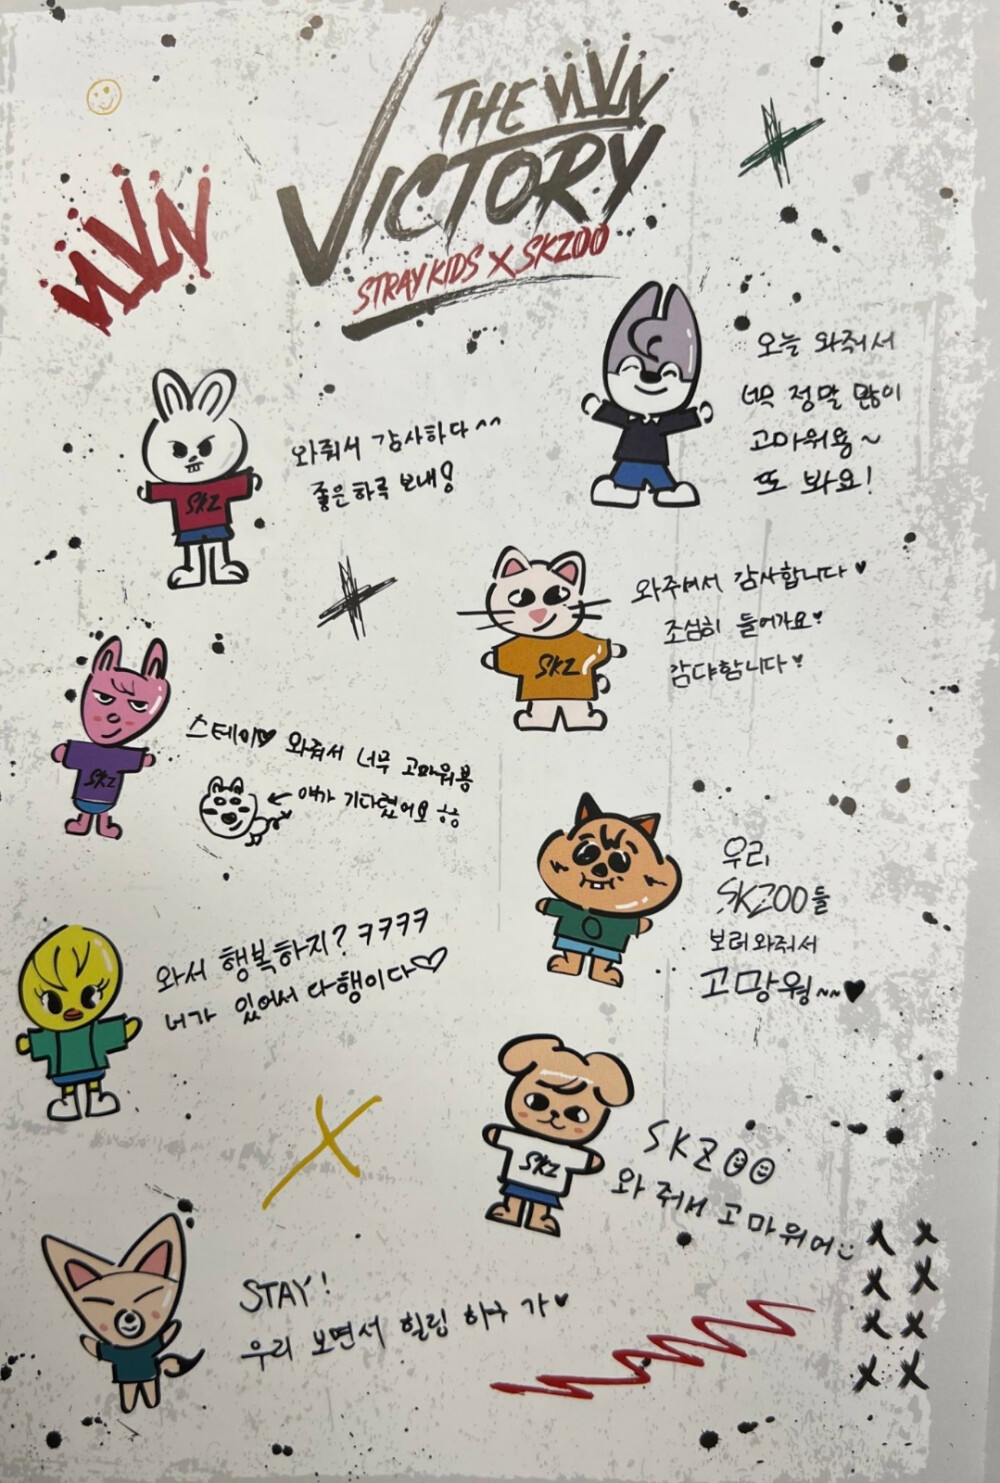 THE
VICTORY
STRAY KIDS X SKZOO
오늘 와줘서
너무 정말 많이
고마워용~
또 봐요!
와줘서 감사하다^^
좋은하루 보내용
SKZ
와주셔서 감사합니다♥
조심히 들어가요♥
감댜합니다♥
SKZ
스테이♥ 와줘서 너무 고마워용
← 얘가 기다렸어요 ㅎㅎ
SKZ
우리
SKZOO들
보러와줘서
고망웡~~♥
와서 행복하지? ㅋㅋㅋㅋ
너가 있어서 다행이다♡
SKZOO
와줘서 고마워어
SKZ
STAY!
우리 보면서 힐링 하구 가♥